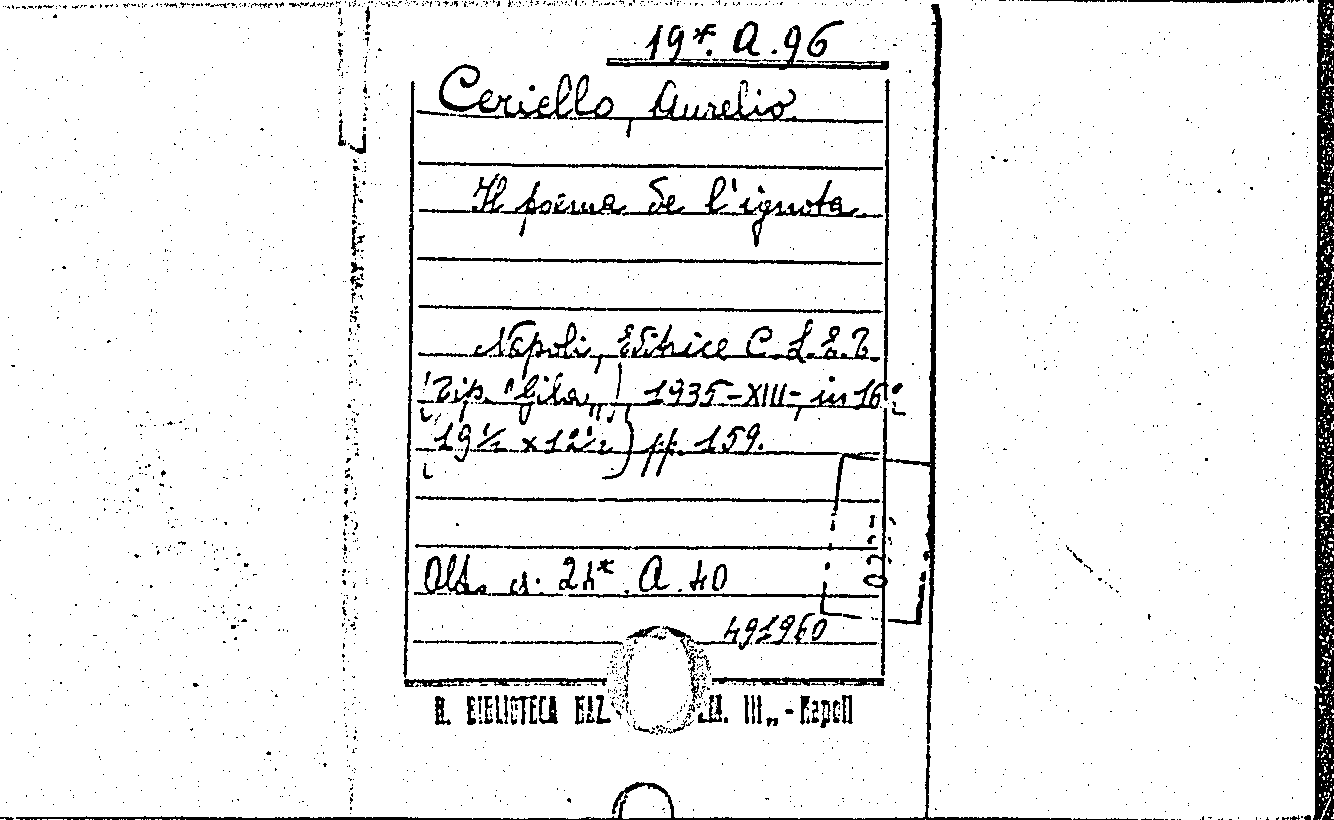 19*. A. 96
Ceriello, Aurelio.
Il poema de l'ignota.
Napoli, Editrice C.L.E.T.
(Tip. "Gila,,) 1935-XIII-, in 16°
(19½ x 12½) pp. 159.
A. 40
491960
R. BIBLIOTECA NAZ. III„ - Napoli